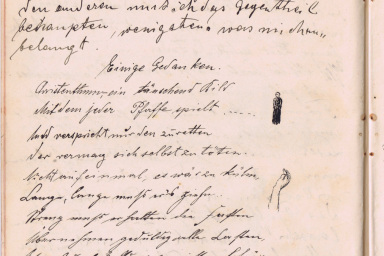 den anderen muß ich das Gegentheil
behaupten, wenigstens was mich an-
belangt.
Einige Gedanken.
Christenthum, ein täuschend Bild
Mit dem jeder Pfaffe spielt
Und verspricht, nur den zu retten
Der vermag sich selbst zu töten.
Nicht auf einmal, es wär zu kühn
Lange, lange muß sich's ziehn.
Streng muß er halten die Fasten
Übernehmen geduldig alle Lasten,